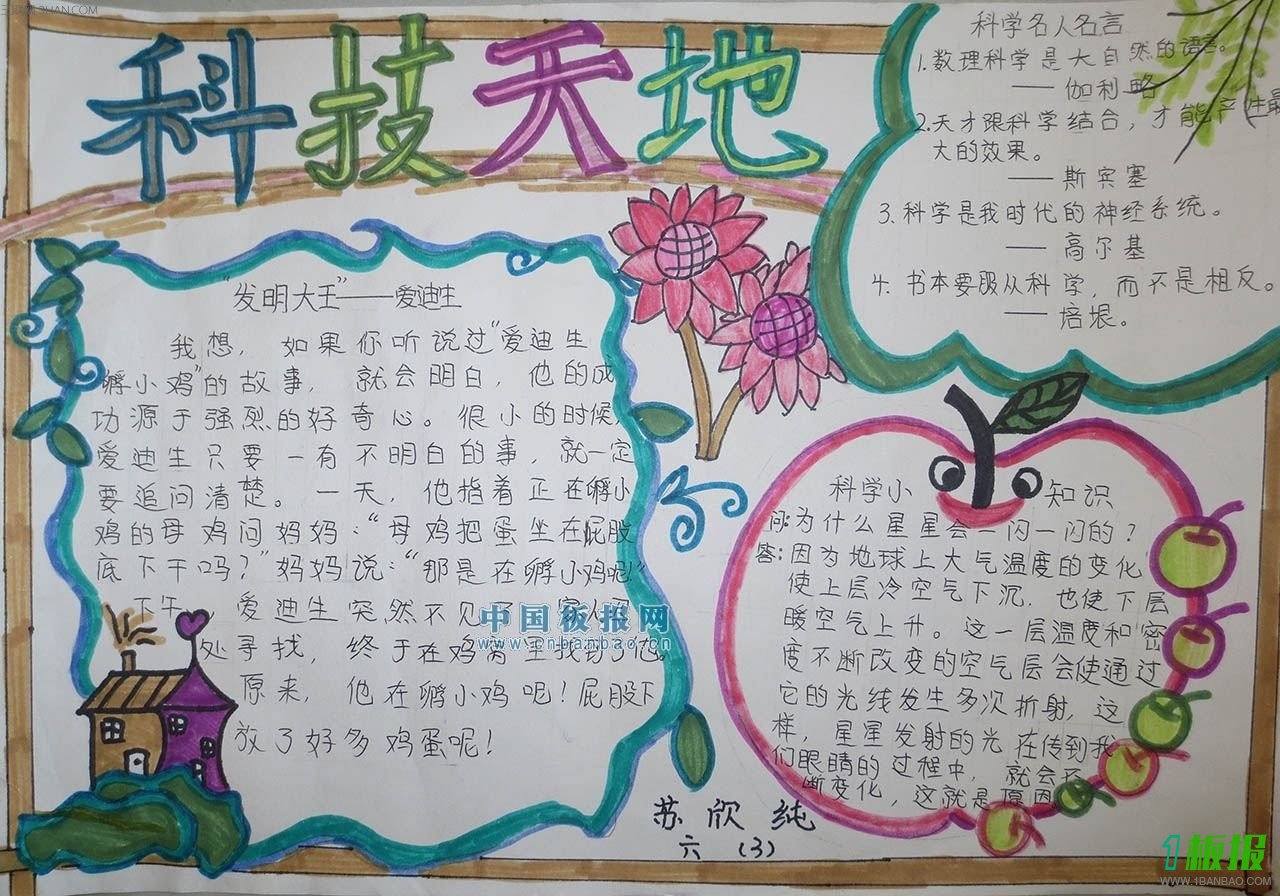 科技天地
科学名人名言
1.数理科学是大自然的语言。
——伽利略
2.天才跟科学结合，才能产生最
大的效果。
——斯宾塞
3.科学是我时代的神经系统。
——高尔基
4.书本要服从科学，而不是相反。
——培根。
"发明大王"——爱迪生
我想，如果你听说过"爱迪生
孵小鸡"的故事，就会明白，他的成
功源于强烈的好奇心。很小的时候，
爱迪生只要一有不明白的事，就一定
要追问清楚。一天，他指着正在孵小
鸡的母鸡问妈妈："母鸡把蛋坐在屁股
底下干吗？"妈妈说："那是在孵小鸡呢！"
下午，爱迪生突然不见了，家人
处寻找，终于在鸡窝里找到了他。
原来，他在孵小鸡呢！屁股下
放了好多鸡蛋呢！
科学小知识
问：为什么星星会一闪一闪的？
答：因为地球上大气温度的变化
使上层冷空气下沉，也使下层
暖空气上升。这一层温度和密
度不断改变的空气层会使通过
它的光线发生多次折射，这
样，星星发射的光在传到我
们眼睛的过程中，就会不
断变化，这就是原因
苏欣纯
六（3）
中国板报网
www.cnbanbao.cn
1板报
WWW.1BANBAO.COM